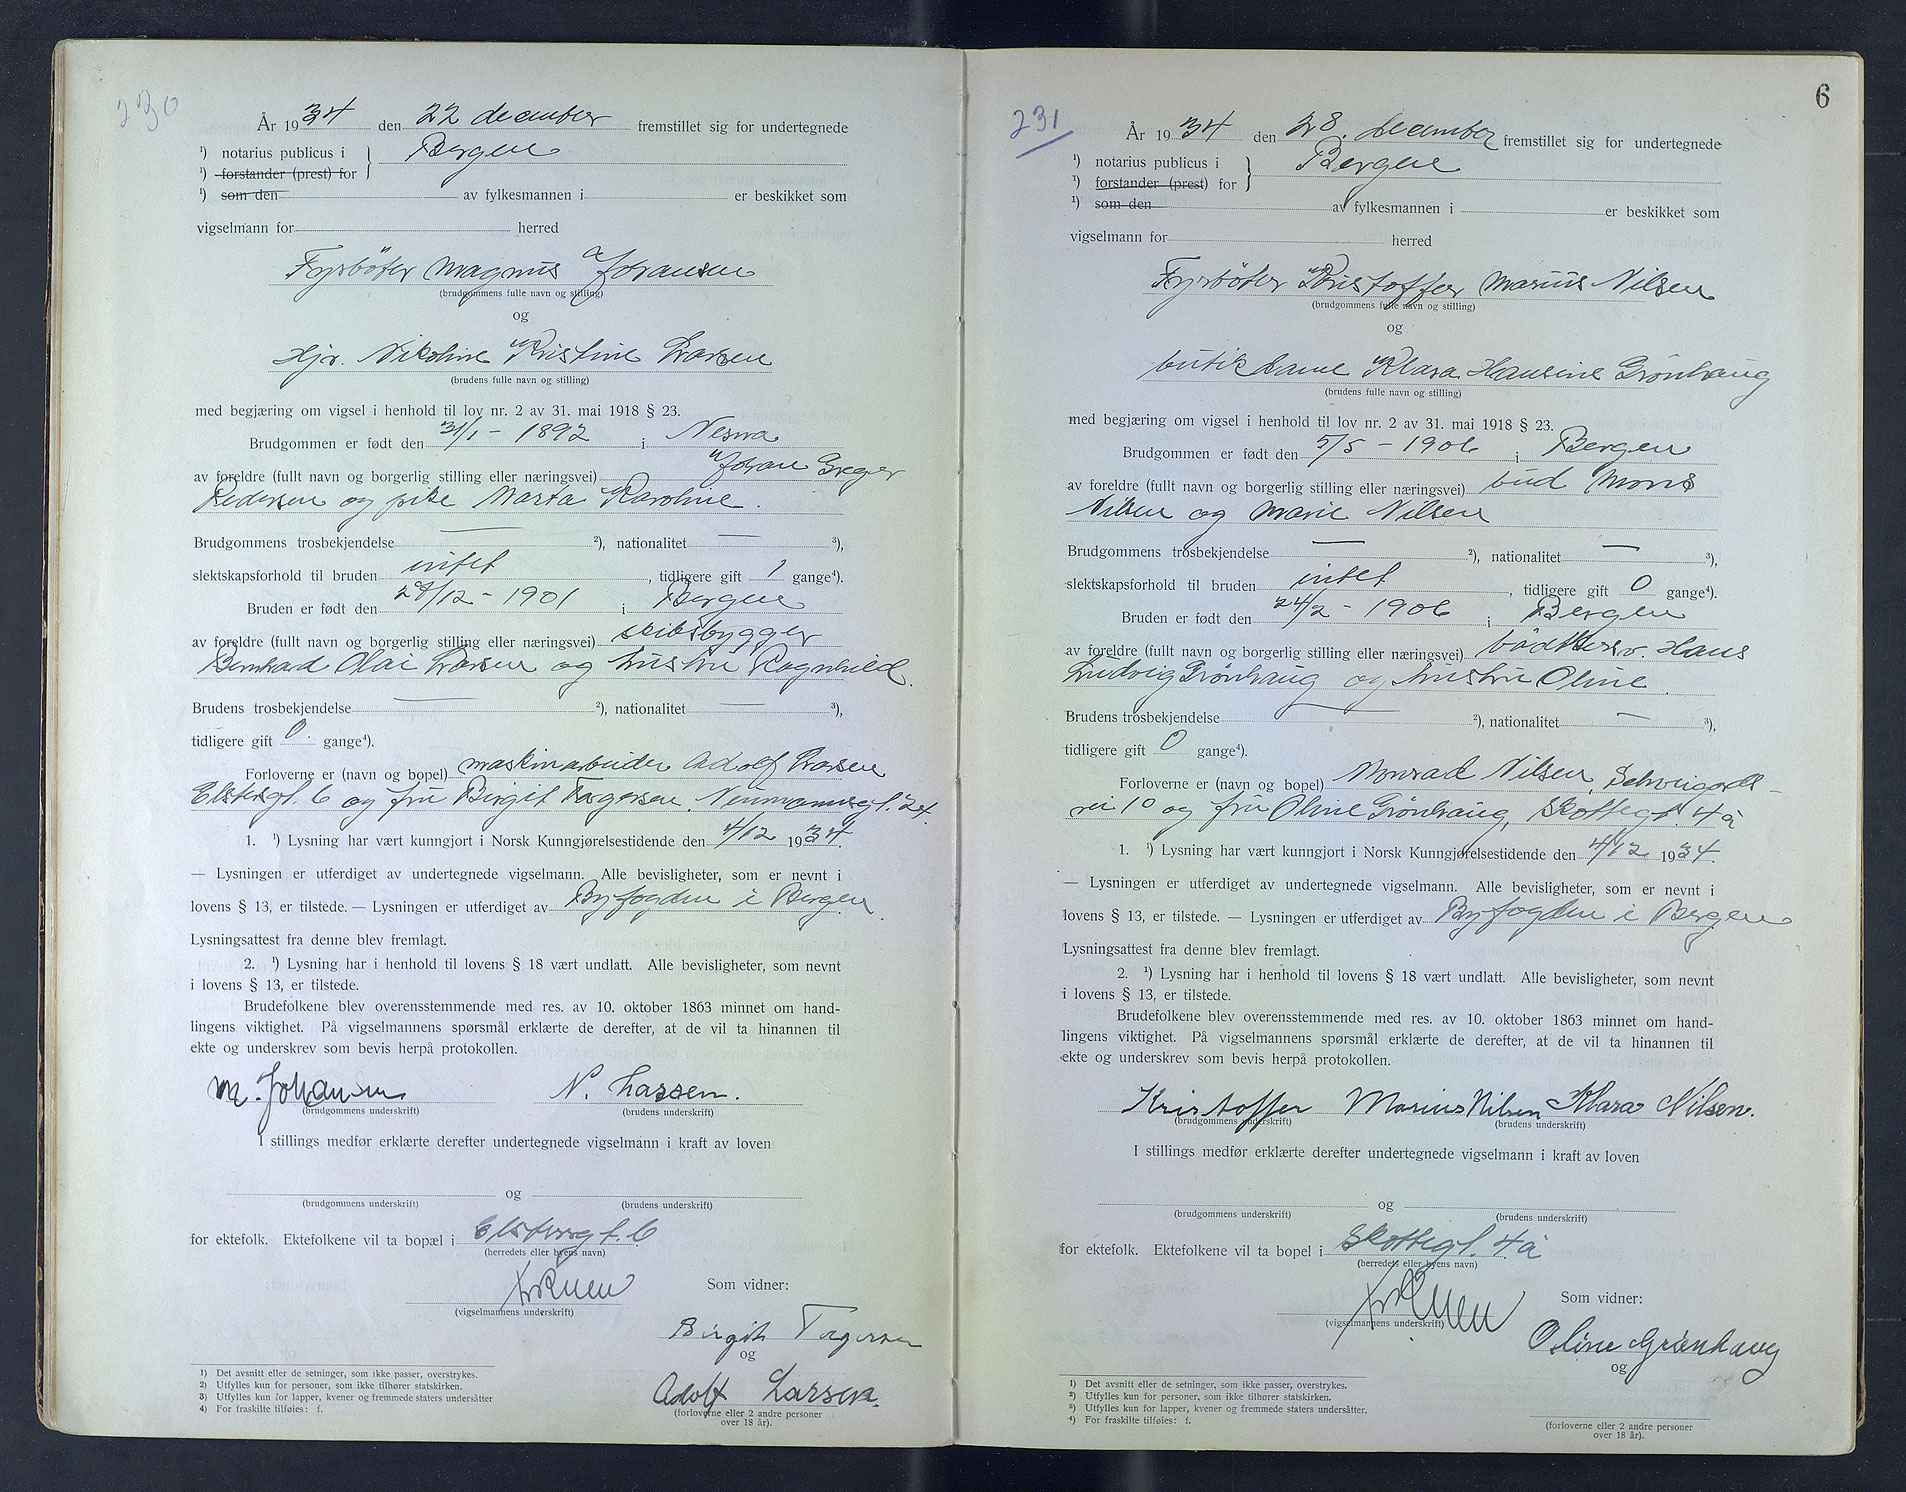 230
År 1934 den 22 december fremstillet sig for undertegnede
¹) notarius publicus i } Bergen
¹) forstander (prest) for
¹) som den av fylkesmannen i er beskikket som
vigselmann for herred
Fyrbøter Magnus Johansen
(brudgommens fulle navn og stilling)
og
Hjv. Nikoline Kristine Larsen
(brudens fulle navn og stilling)
med begjæring om vigsel i henhold til lov nr. 2 av 31. mai 1918 § 23.
Brudgommen er født den 31/1 - 1892 i Nesna
av foreldre (fullt navn og borgerlig stilling eller næringsvei) Johan Greger
Pedersen og pike Marta Karoline.
Brudgommens trosbekjendelse — ²), nationalitet — ³),
slektskapsforhold til bruden intet, tidligere gift 1 gange⁴).
Bruden er født den 28/12 - 1901 i Bergen
av foreldre (fullt navn og borgerlig stilling eller næringsvei) skibsbygger
Bernhard Olai Larsen og hustru Ragnhild.
Brudens trosbekjendelse — ²), nationalitet — ³),
tidligere gift 0 gange⁴).
Forloverne er (navn og bopel) maskinarbeider Adolf Larsen
Elstersgt. 6 og fru Birgit Torgersen Neumannsgt. 24.
1. ¹) Lysning har vært kunngjort i Norsk Kunngjørelsestidende den 4/12 1934.
— Lysningen er utferdiget av undertegnede vigselmann. Alle bevisligheter, som er nevnt i
lovens § 13, er tilstede. — Lysningen er utferdiget av Byfogden i Bergen
Lysningsattest fra denne blev fremlagt.
2. ¹) Lysning har i henhold til lovens § 18 vært undlatt. Alle bevisligheter, som nevnt
i lovens § 13, er tilstede.
Brudefolkene blev overensstemmende med res. av 10. oktober 1863 minnet om hand-
lingens viktighet. På vigselmannens spørsmål erklærte de derefter, at de vil ta hinannen til
ekte og underskrev som bevis herpå protokollen.
M. Johansen N. Larsen.
(brudgommens underskrift) (brudens underskrift)
I stillings medfør erklærte derefter undertegnede vigselmann i kraft av loven
og
(brudgommens underskrift) (brudens underskrift)
for ektefolk. Ektefolkene vil ta bopæl i Elstersgt. 6
(herredets eller byens navn)
Som vidner:
(vigselmannens underskrift)
Birgit Torgersen
og
Adolf Larsen.
(forloverne eller 2 andre personer
over 18 år).
1) Det avsnitt eller de setninger, som ikke passer, overstrykes.
2) Utfylles kun for personer, som ikke tilhører statskirken.
3) Utfylles kun for lapper, kvener og fremmede staters undersåtter
4) For fraskilte tilføies: f.
6
231
År 1934 den 28. december fremstillet sig for undertegnede
¹) notarius publicus i } Bergen
¹) forstander (prest) for
¹) som den av fylkesmannen i er beskikket som
vigselmann for herred
Fyrbøter Kristoffer Marius Nilsen
(brudgommens fulle navn og stilling)
og
butikdame Klara Hansine Grønhaug
(brudens fulle navn og stilling)
med begjæring om vigsel i henhold til lov nr. 2 av 31. mai 1918 § 23.
Brudgommen er født den 5/5 - 1906 i Bergen
av foreldre (fullt navn og borgerlig stilling eller næringsvei) bud Mons
Nilsen og Marie Nilsen
Brudgommens trosbekjendelse — ²), nationalitet — ³),
slektskapsforhold til bruden intet, tidligere gift 0 gange⁴).
Bruden er født den 24/2 - 1906 i Bergen
av foreldre (fullt navn og borgerlig stilling eller næringsvei) bødkersv. Hans
Ludvig Grønhaug og hustru Oline.
Brudens trosbekjendelse — ²), nationalitet — ³),
tidligere gift 0 gange⁴).
Forloverne er (navn og bopel) Monrad Nilsen, Schweigaards-
vei 10 og fru Oline Grønhaug, Skottegt. 4 a
1. ¹) Lysning har vært kunngjort i Norsk Kunngjørelsestidende den 4/12 1934.
— Lysningen er utferdiget av undertegnede vigselmann. Alle bevisligheter, som er nevnt i
lovens § 13, er tilstede. — Lysningen er utferdiget av Byfogden i Bergen
Lysningsattest fra denne blev fremlagt.
2. ¹) Lysning har i henhold til lovens § 18 vært undlatt. Alle bevisligheter, som nevnt
i lovens § 13, er tilstede.
Brudefolkene blev overensstemmende med res. av 10. oktober 1863 minnet om hand-
lingens viktighet. På vigselmannens spørsmål erklærte de derefter, at de vil ta hinannen til
ekte og underskrev som bevis herpå protokollen.
Kristoffer Marius Nilsen Klara Nilsen.
(brudgommens underskrift) (brudens underskrift)
I stillings medfør erklærte derefter undertegnede vigselmann i kraft av loven
og
(brudgommens underskrift) (brudens underskrift)
for ektefolk. Ektefolkene vil ta bopel i Skottegt. 4 a
(herredets eller byens navn)
Som vidner:
(vigselmannens underskrift)
Oline Grönhaug
og
(forloverne eller 2 andre personer
over 18 år).
1) Det avsnitt eller de setninger, som ikke passer, overstrykes.
2) Utfylles kun for personer, som ikke tilhører statskirken.
3) Utfylles kun for lapper, kvener og fremmede staters undersåtter.
4) For fraskilte tilføies: f.